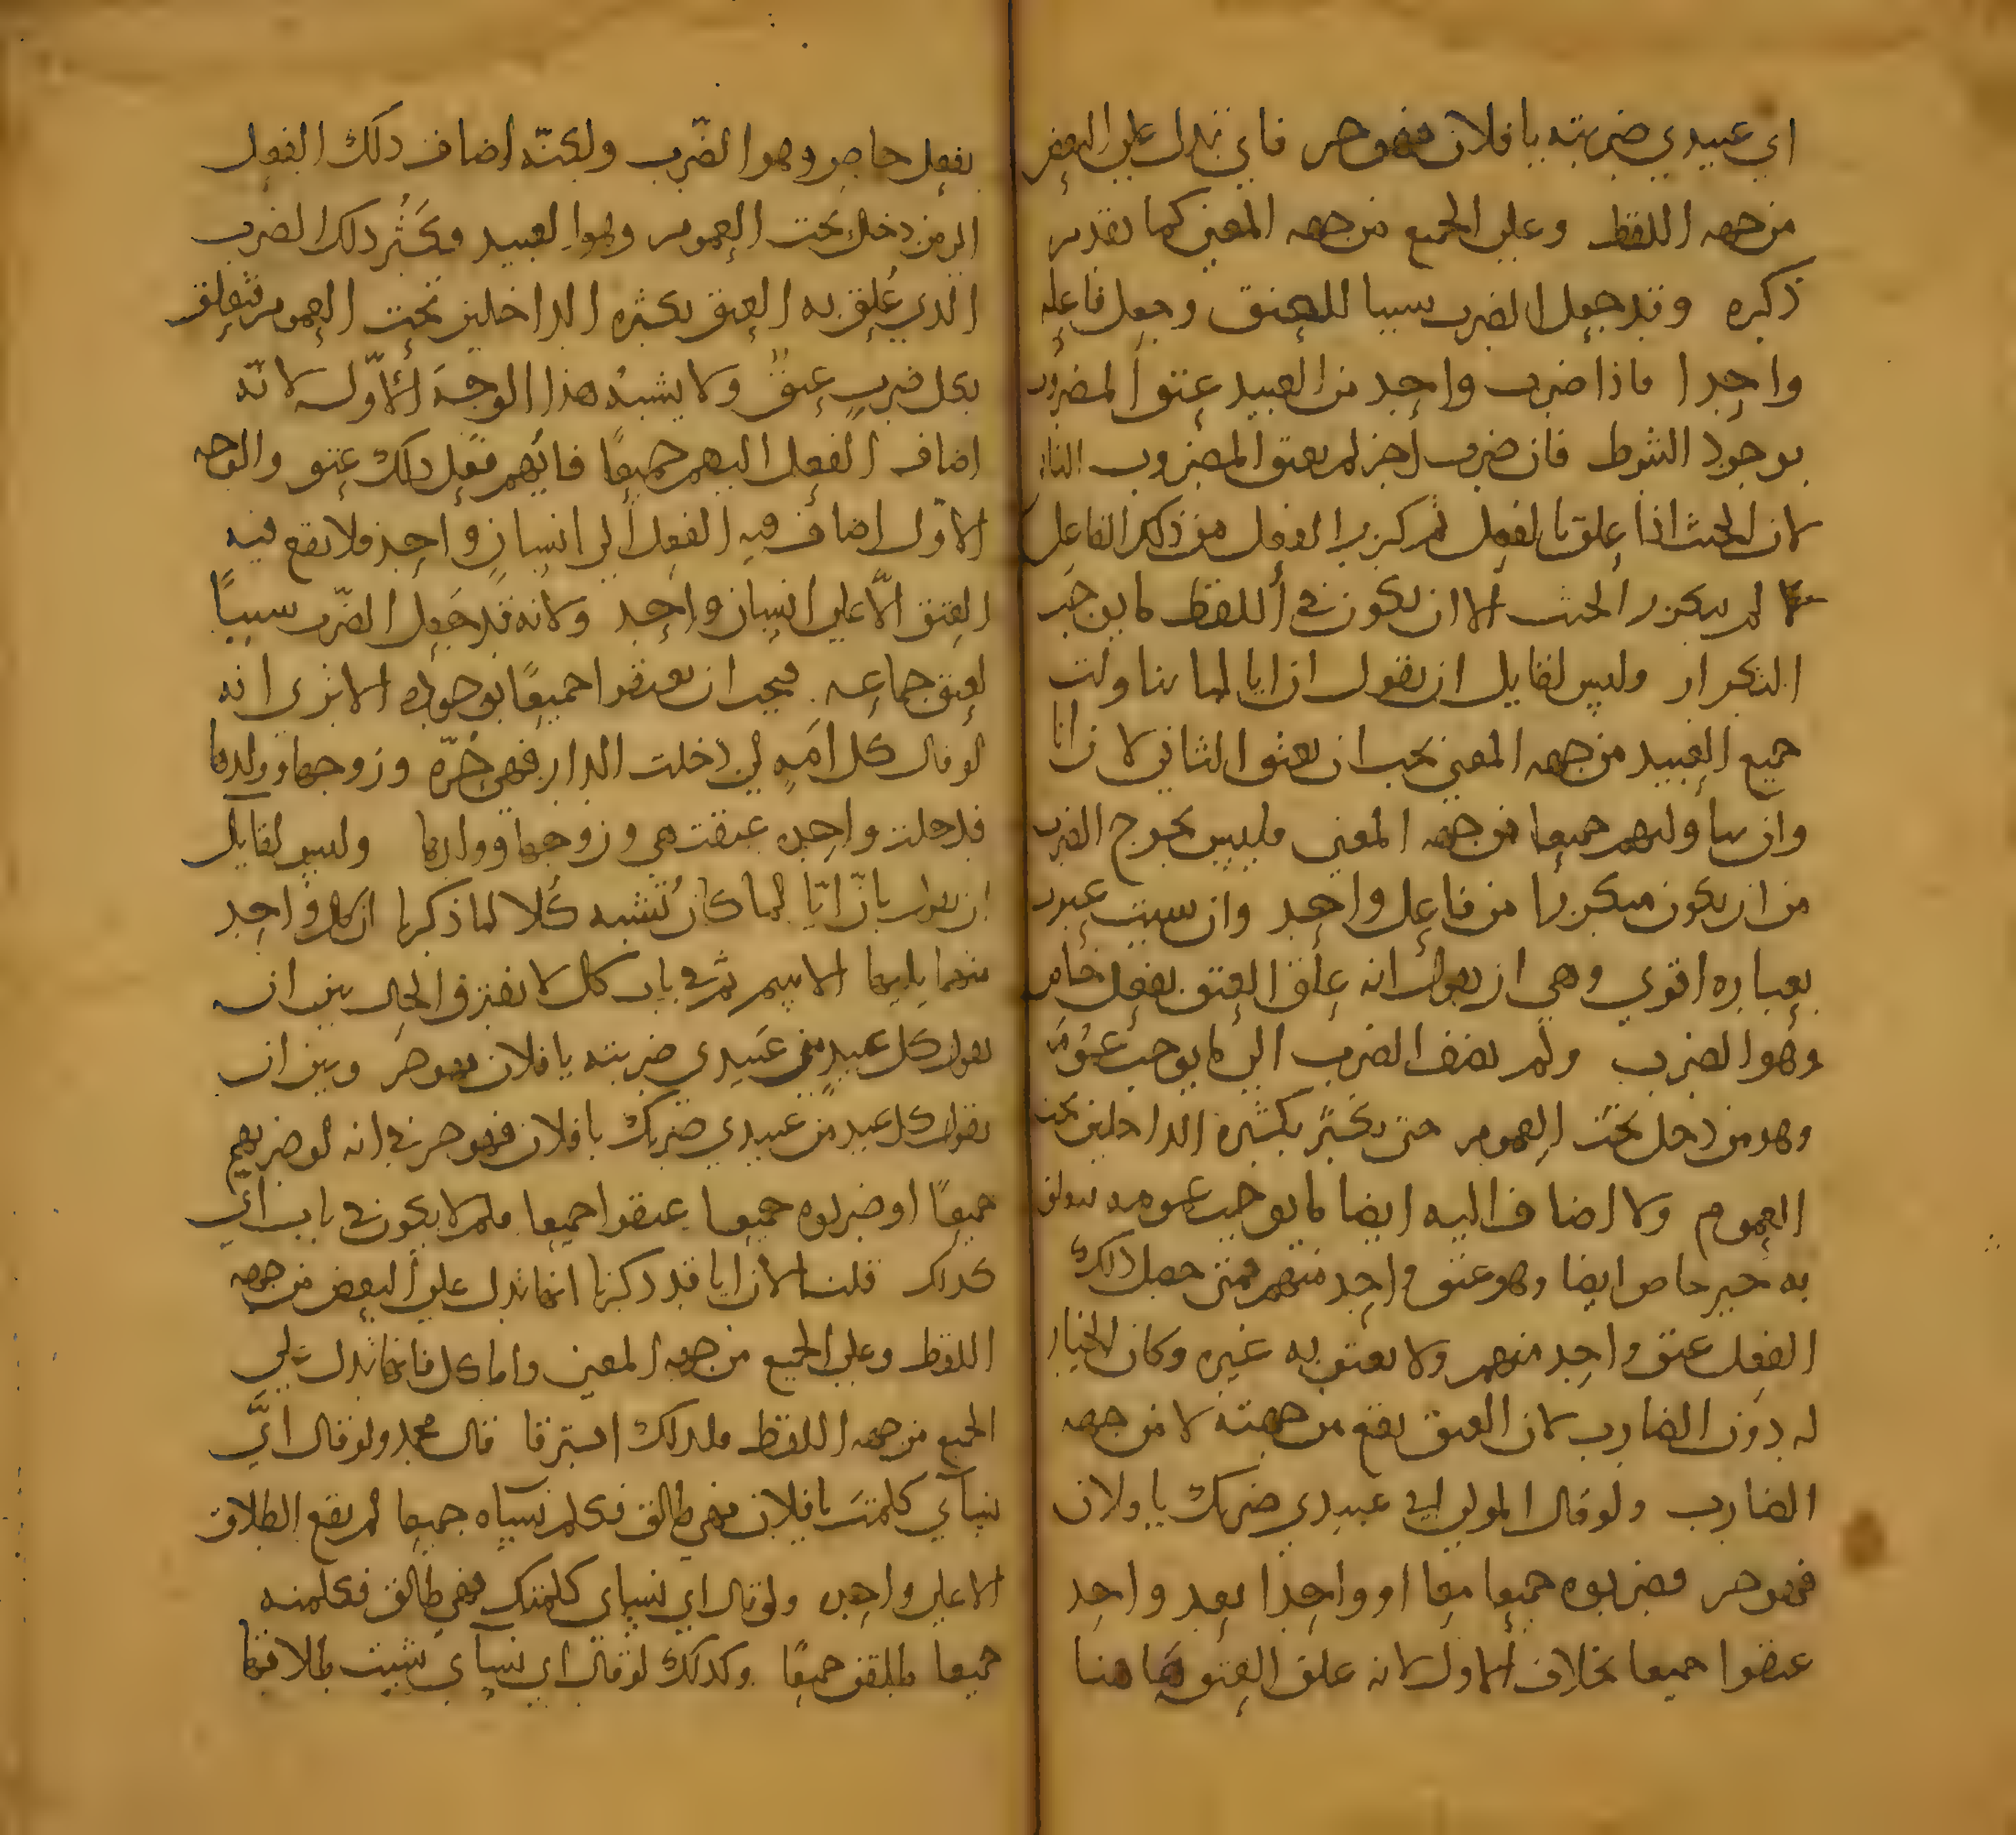 اي عبيدي ضربته يا فلان فهو حر فاي تدل على البعض
من جهه اللفظ وعلى الجميع من جهه المعنى كما تقدم
ذكره وقد جعل الضرب سببا للعتق وجعل فاعله
واحدا فاذا ضرب واحد من العبيد عتق المضروب
بوجود الشرط فان ضرب اخر لم يعتق المضروب الثاني
لان الحنث اذا علق بالفعل ثم تكرر الفعل من ذلك الفاعل
لم يتكرر الحنث الا ان يكون في اللفظ ما يوجب
التكرار وليس لقايل ان يقول ان ايا لما تناولت
جميع العبيد من جهه المعنى يجب ان يعتق الثاني لان ايا
وان تناولتهم جميعا من جهه المعنى فليس يخرج الضرب
من ان يكون متكررا من فاعل واحد وان شيت عبرت
بعباره اقوى وهي ان يقول انه علق العتق بفعل خاص
وهو الضرب ولم يضف الضرب الى ما يوجب عمومه
وهو من دخل تحت العموم حتى يكثر بكثره الداخلين تحت
العموم ولا اضاف اليه ايضا ما يوجب عمومه فيعلق
به خبر خاص ايضا وهو عتق واحد منهم فمتى حصل ذلك
الفعل عتق واحد منهم ولا يعتق به غيره وكان الخيار
له دون الضارب لان العتق يقع من جهته لا من جهه
الضارب ولو قال المولى اي عبيدي ضربك يا فلان
فهو حر فضربوه جميعا معا او واحدا بعد واحد
عتقوا جميعا بخلاف الاول لانه علق العتق هاهنا
بفعل خاص وهو الضّرب ولكنّه اضاف ذلك الفعل
الى من دخل تحت العموم وهو العبيد فكَثُر ذلك الضرب
الذي عُلق به العتق بكثره الداخلين تحت العموم فتعلق
بكل ضربٍ عتقٌ ولا يشبهُ هذا الوجهَ الاوّل لانّه
اضاف الفعل اليهم جميعًا فايّهم فعل ذلك عتق والوجه
الاوّل اضاف فيه الفعل الى انسانٍ واحد فلا يقع فيه
العتق الّا على انسان واحد ولانه قد جعل الضّرب سببًا
لعتق جماعه فيجب ان يعتقوا جميعًا بوجوده الا ترى انه
لو قال كل امةٍ لي دخلت الدار فهي حُرّه وزوجها وولدها
فدخلت واحده عتقت هي وزوجها وولدها وليس لقايل
ان يقول بانّ ايّا لما كان تُشبه كُلا لما ذكرنا ان كل واحد
منهما يليها الاسم ثم في باب كل لا يفترق الحال بين ان
يقول كل عبدٍ من عبيدي ضربته يا فلان فهو حر وبين ان
يقول كل عبد من عبيدي ضربك يا فلان فهو حر في انه لو ضربهم
جميعًا او ضربوه جميعا عتقوا جميعا فلم لا يكون في باب اي
كذلك قلنا لان ايا قد ذكرنا انها تدل على البعض من جهه
اللفظ وعلى الجميع من جهه المعنى واما كل فانها تدل على
الجميع من جهه اللفظ فلذلك افترقا قال محمد ولو قال ايّ
نسآي كلمتَ يا فلان فهي طالق فكلم نسآه جميعا لم يقع الطلاق
الا على واحده ولو قال اي نسآي كلمتك فهي طالق فكلمنه
جميعا طلقن جميعًا وكذلك لو قال اي نسآي شيت طلاقها